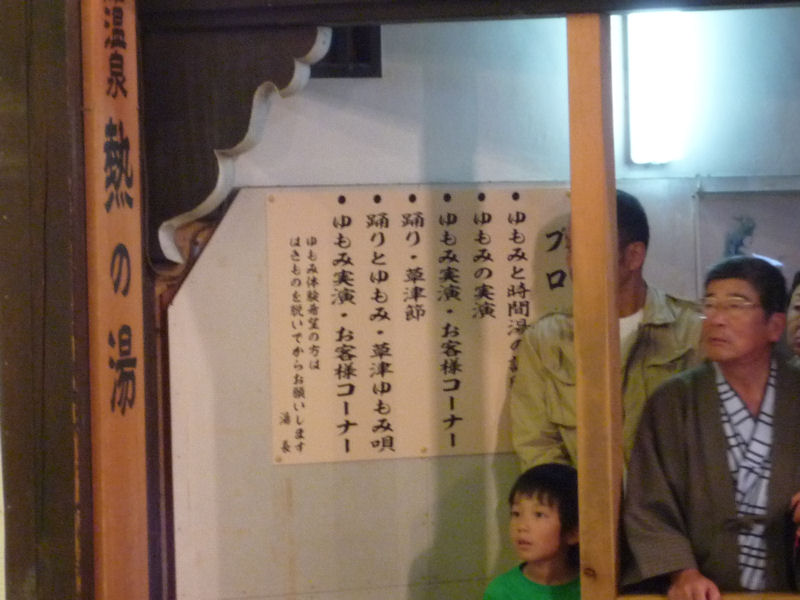 温泉 熱の湯
プロ
・ゆもみと時間湯の
・ゆもみの実演
・ゆもみ実演・お客様コーナー
・踊り・草津節
・踊りとゆもみ・草津ゆもみ唄
・ゆもみ実演・お客様コーナー
ゆもみ体験希望の方は
はきものを脱いでからお願いします
湯長